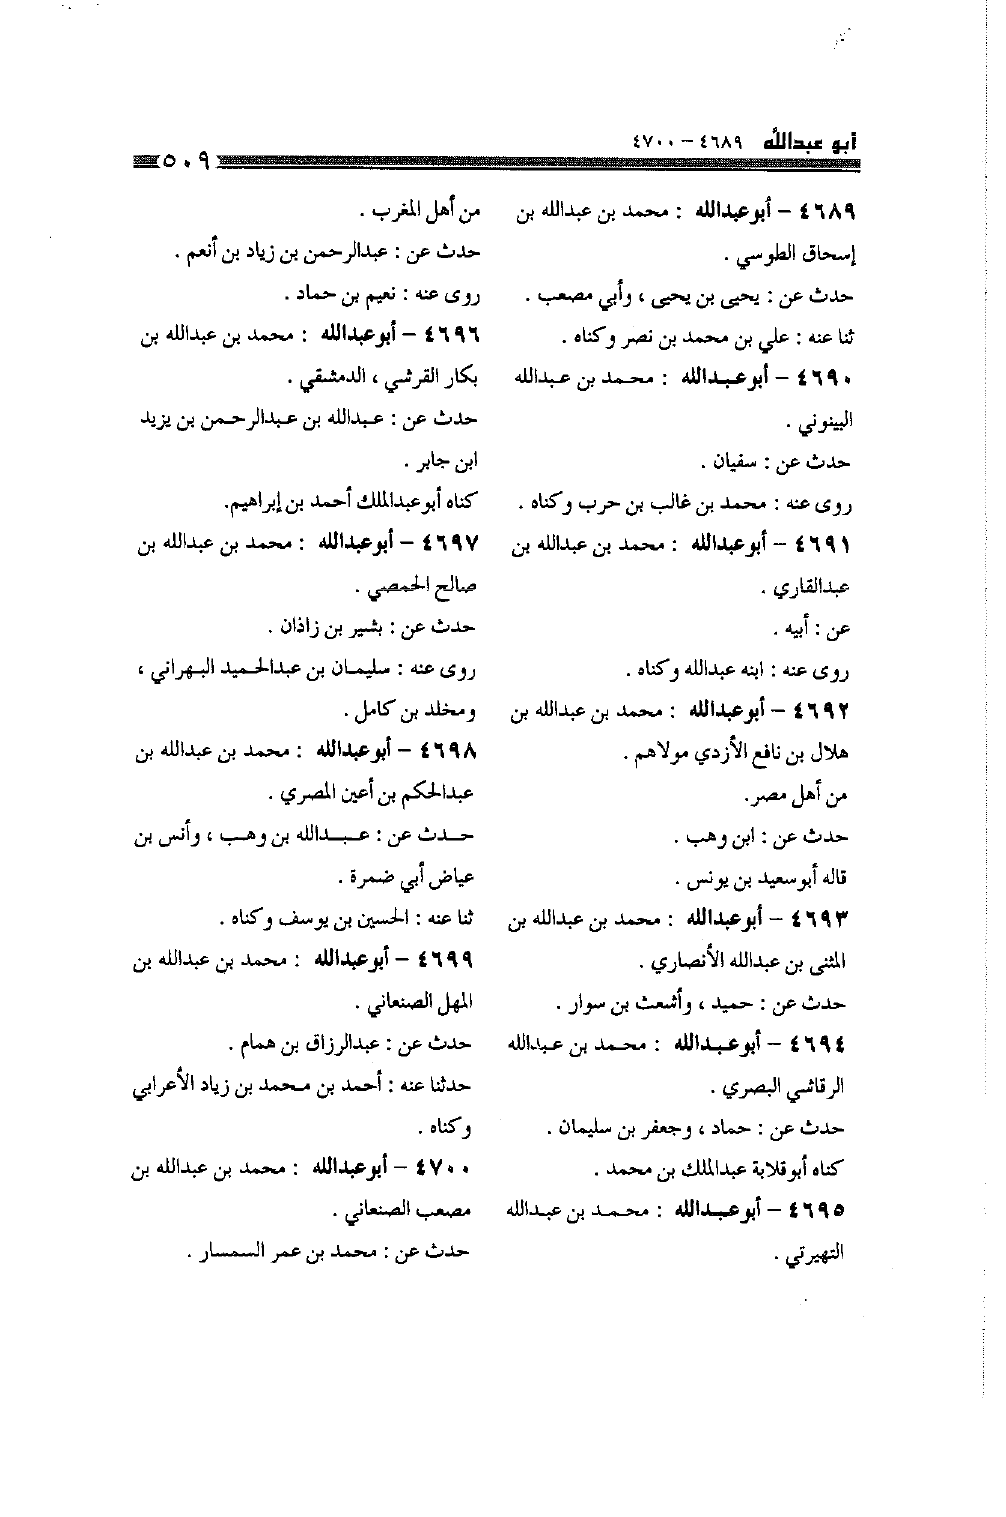 أبو عبدالله ٤٦٨٩ – ٤٧٠٠
٥٠٩
٤٦٨٩ – أبوعبدالله : محمد بن عبدالله بن
إسحاق الطوسي .
حدث عن : يحيى بن يحيى ، وأبي مصعب .
ثنا عنه : علي بن محمد بن نصر وكناه .
٤٦٩٠ – أبوعبدالله : محمد بن عبدالله
البينوني .
حدث عن : سفيان .
روى عنه : محمد بن غالب بن حرب وكناه .
٤٦٩١ – أبوعبدالله : محمد بن عبدالله بن
عبدالقاري .
عن : أبيه .
روى عنه : ابنه عبدالله وكناه .
٤٦٩٢ – أبوعبدالله : محمد بن عبدالله بن
هلال بن نافع الأزدي مولاهم .
من أهل مصر.
حدث عن : ابن وهب .
قاله أبوسعيد بن يونس .
٤٦٩٣ – أبوعبدالله : محمد بن عبدالله بن
المثنى بن عبدالله الأنصاري .
حدث عن : حميد ، وأشعث بن سوار .
٤٦٩٤ – أبوعبدالله : محمد بن عبدالله
الرقاشي البصري .
حدث عن : حماد ، وجعفر بن سليمان .
كناه أبوقلابة عبدالملك بن محمد .
٤٦٩٥ – أبوعبدالله : محمد بن عبدالله
التهيرتي .
من أهل المغرب .
حدث عن : عبدالرحمن بن زياد بن أنعم .
روى عنه : نعيم بن حماد .
٤٦٩٦ – أبوعبدالله : محمد بن عبدالله بن
بكار القرشي ، الدمشقي .
حدث عن : عبدالله بن عبدالرحمن بن يزيد
ابن جابر .
كناه أبوعبدالملك أحمد بن إبراهيم.
٤٦٩٧ – أبوعبدالله : محمد بن عبدالله بن
صالح الحمصي .
حدث عن : بشير بن زاذان .
روى عنه : سليمان بن عبدالحميد البهراني ،
ومخلد بن كامل .
٤٦٩٨ – أبوعبدالله : محمد بن عبدالله بن
عبدالحكم بن أعين المصري .
حدث عن : عبدالله بن وهب ، وأنس بن
عياض أبي ضمرة .
ثنا عنه : الحسين بن يوسف وكناه .
٤٦٩٩ – أبوعبدالله : محمد بن عبدالله بن
المهل الصنعاني .
حدث عن : عبدالرزاق بن همام .
حدثنا عنه : أحمد بن محمد بن زياد الأعرابي
وكناه .
٤٧٠٠ – أبوعبدالله : محمد بن عبدالله بن
مصعب الصنعاني .
حدث عن : محمد بن عمر السمسار .